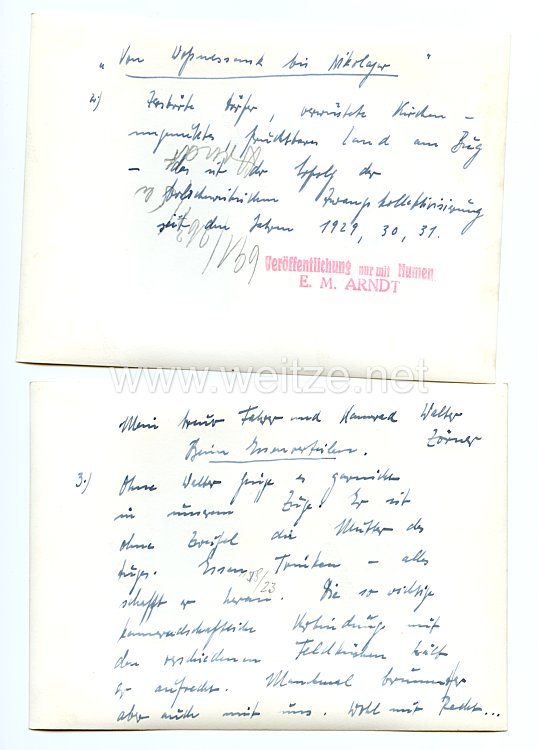 „Von Wosnessensk bis Nikolajew"
2.) Zerstörte Dörfer, verwüstete Kirchen –
ungenütztes fruchtbares Land am Bug
– das ist der Erfolg der
bolschewistischen Zwangskollektivisierung
seit den Jahren 1929, 30, 31.
Veröffentlichung nur mit Namen
E. M. ARNDT
www.weitze.net
Mein treuer Fahrer und Kamerad Walter
Zörner
Beim Essenverteilen.
3.) Ohne Walter ginge es garnicht
in unserem Zuge. Er ist
ohne Zweifel die Mutter des
Zuges. Essen, Trinken – alles
schafft er heran. Die so wichtige
kameradschaftliche Verbindung mit
den verschiedenen Feldküchen hält
er aufrecht. Manchmal brummt er
aber auch mit uns. Wohl mit Recht...